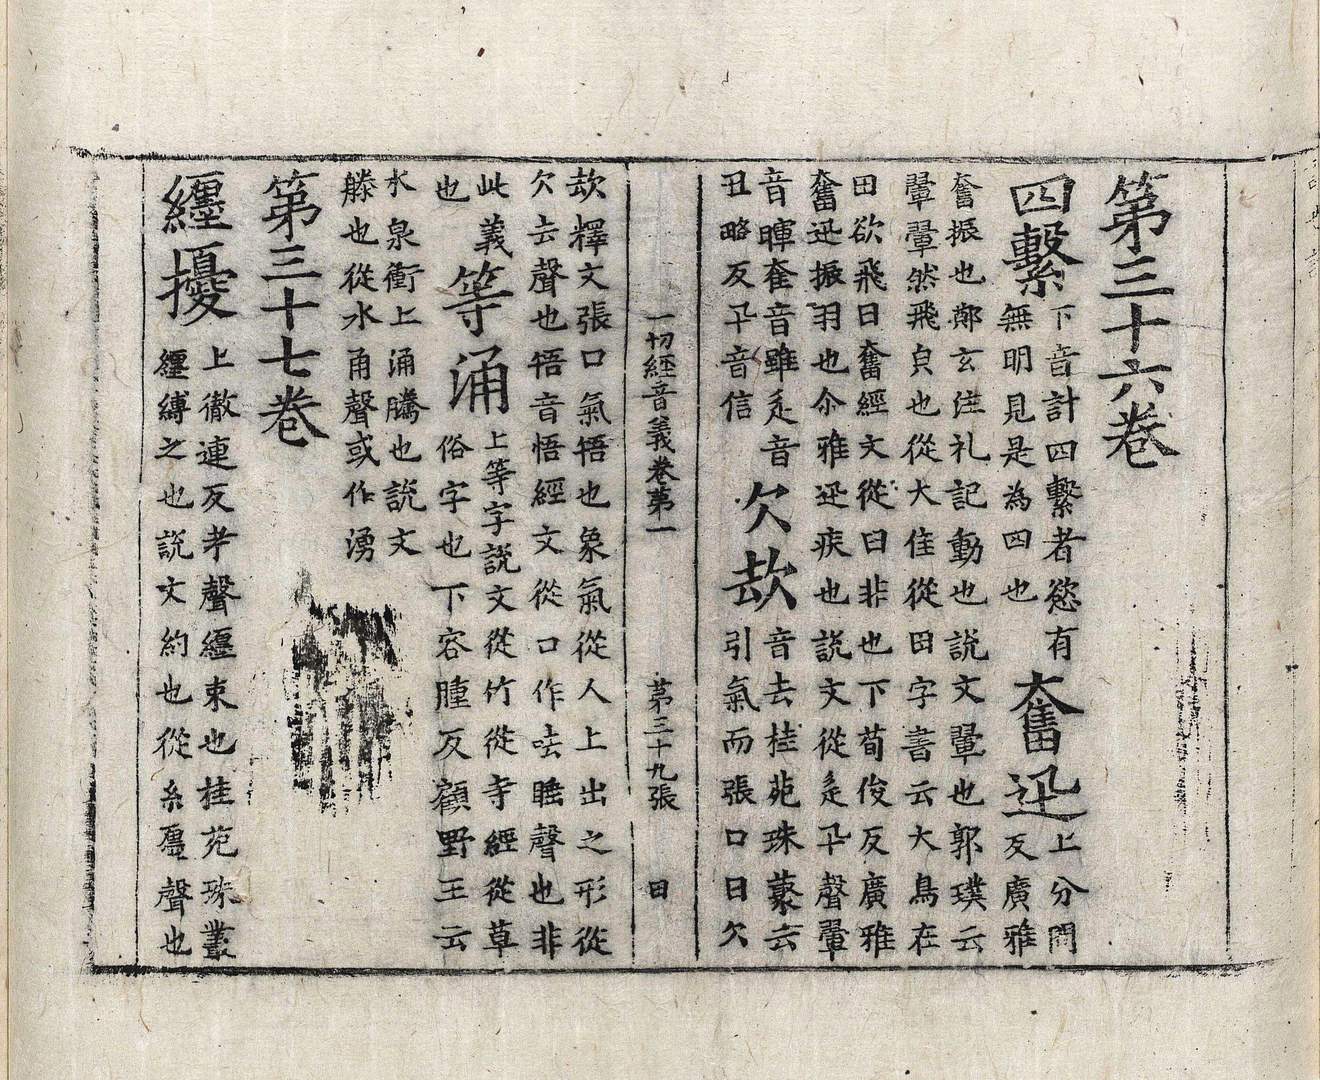 第三十六卷
四繫下音計四繫者慾有
無明見是為四也奮迅上分問
反廣雅
奮振也鄭玄注礼記動也說文翬也郭璞云
翬翬然飛皃也從大隹從田字書云大鳥在
田欲飛曰奮經文從臼非也下荀俊反廣雅
奮迅振羽也尒雅迅疾也說文從辵卂聲翬
音暉奞音雖辵音
丑略反卂音信欠㰦音去桂苑珠藂云
引氣而張口曰欠
一切經音義卷第一 第三十九張 曰
㰦釋文張口氣啎也象氣從人上出之形從
欠去聲也啎音悟經文從口作呿睡聲也非
此義
也等涌上等字說文從竹從寺經從草
俗字也下容腫反顧野王云
水泉衝上涌騰也說文
滕也從水甬聲或作湧
第三十七卷
纏擾上徹連反考聲纏束也桂苑珠叢
纏縛之也說文約也從糸㕓聲也